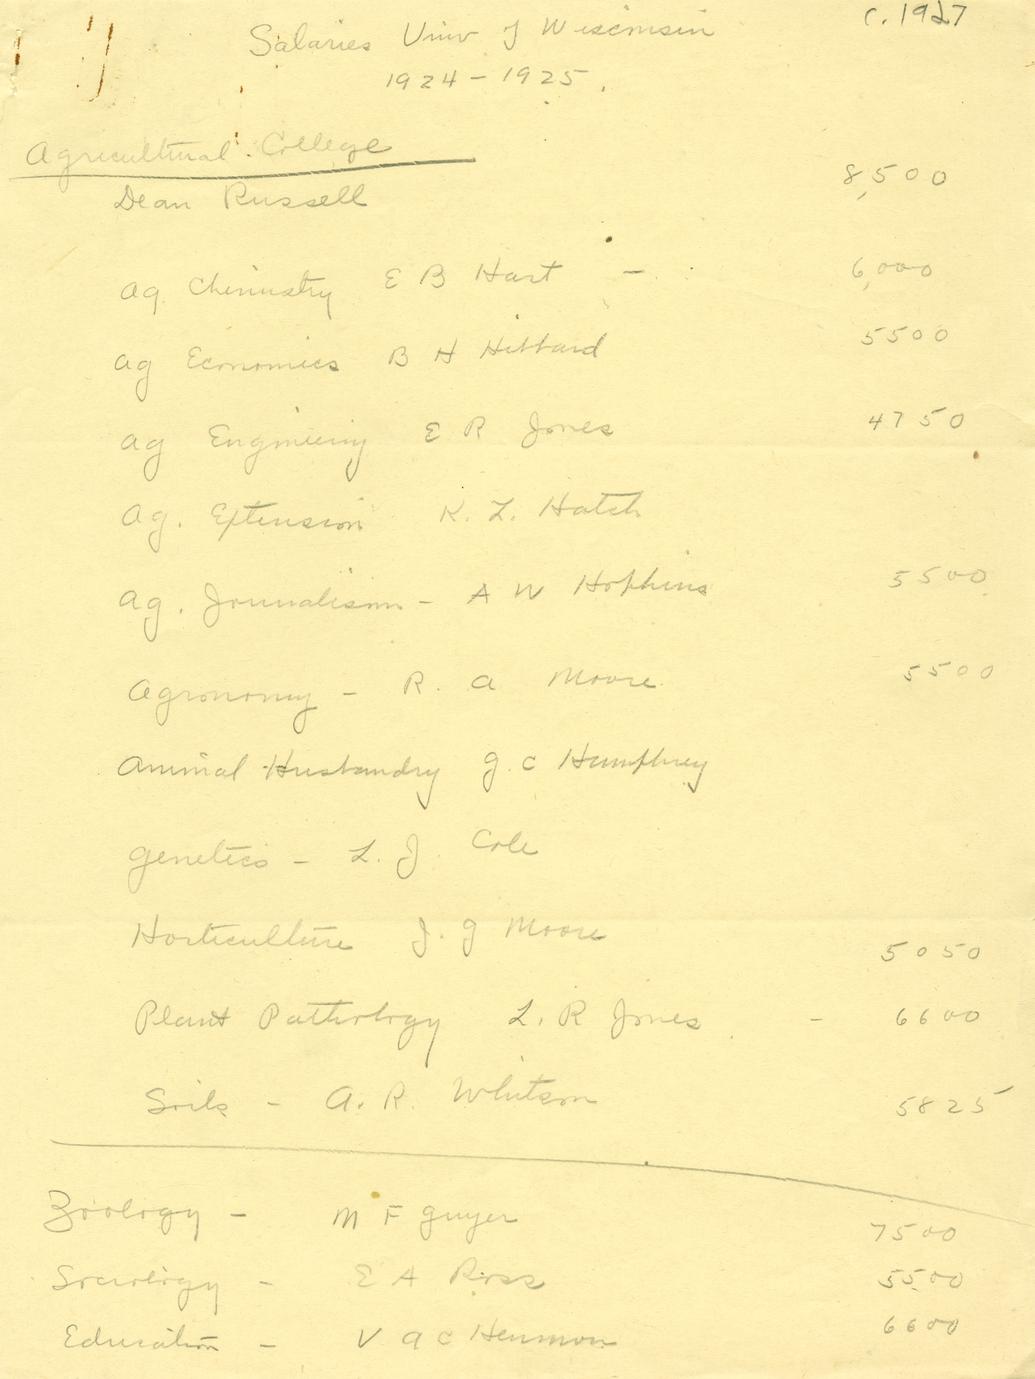 c. 1927
Salaries Univ of Wisconsin
1924 - 1925.
Agricultural College
Dean Russell 8,500
Ag. Chemistry E B Hart - 6,000
Ag Economics B H Hibbard 5500
Ag Engineering E R Jones 4750
Ag. Extension K. L. Hatch
Ag. Journalism - A W Hopkins 5500
Agronomy - R. A Moore 5500
Animal Husbandry G. C Humphrey
Genetics - L. J. Cole
Horticulture J. G Moore 5050
Plant Pathology L. R Jones - 6600
Soils - A. R. Whitson 5825
Zoology - M F Guyer 7500
Sociology - E A Ross 5500
Education - V A C Henmon 6600